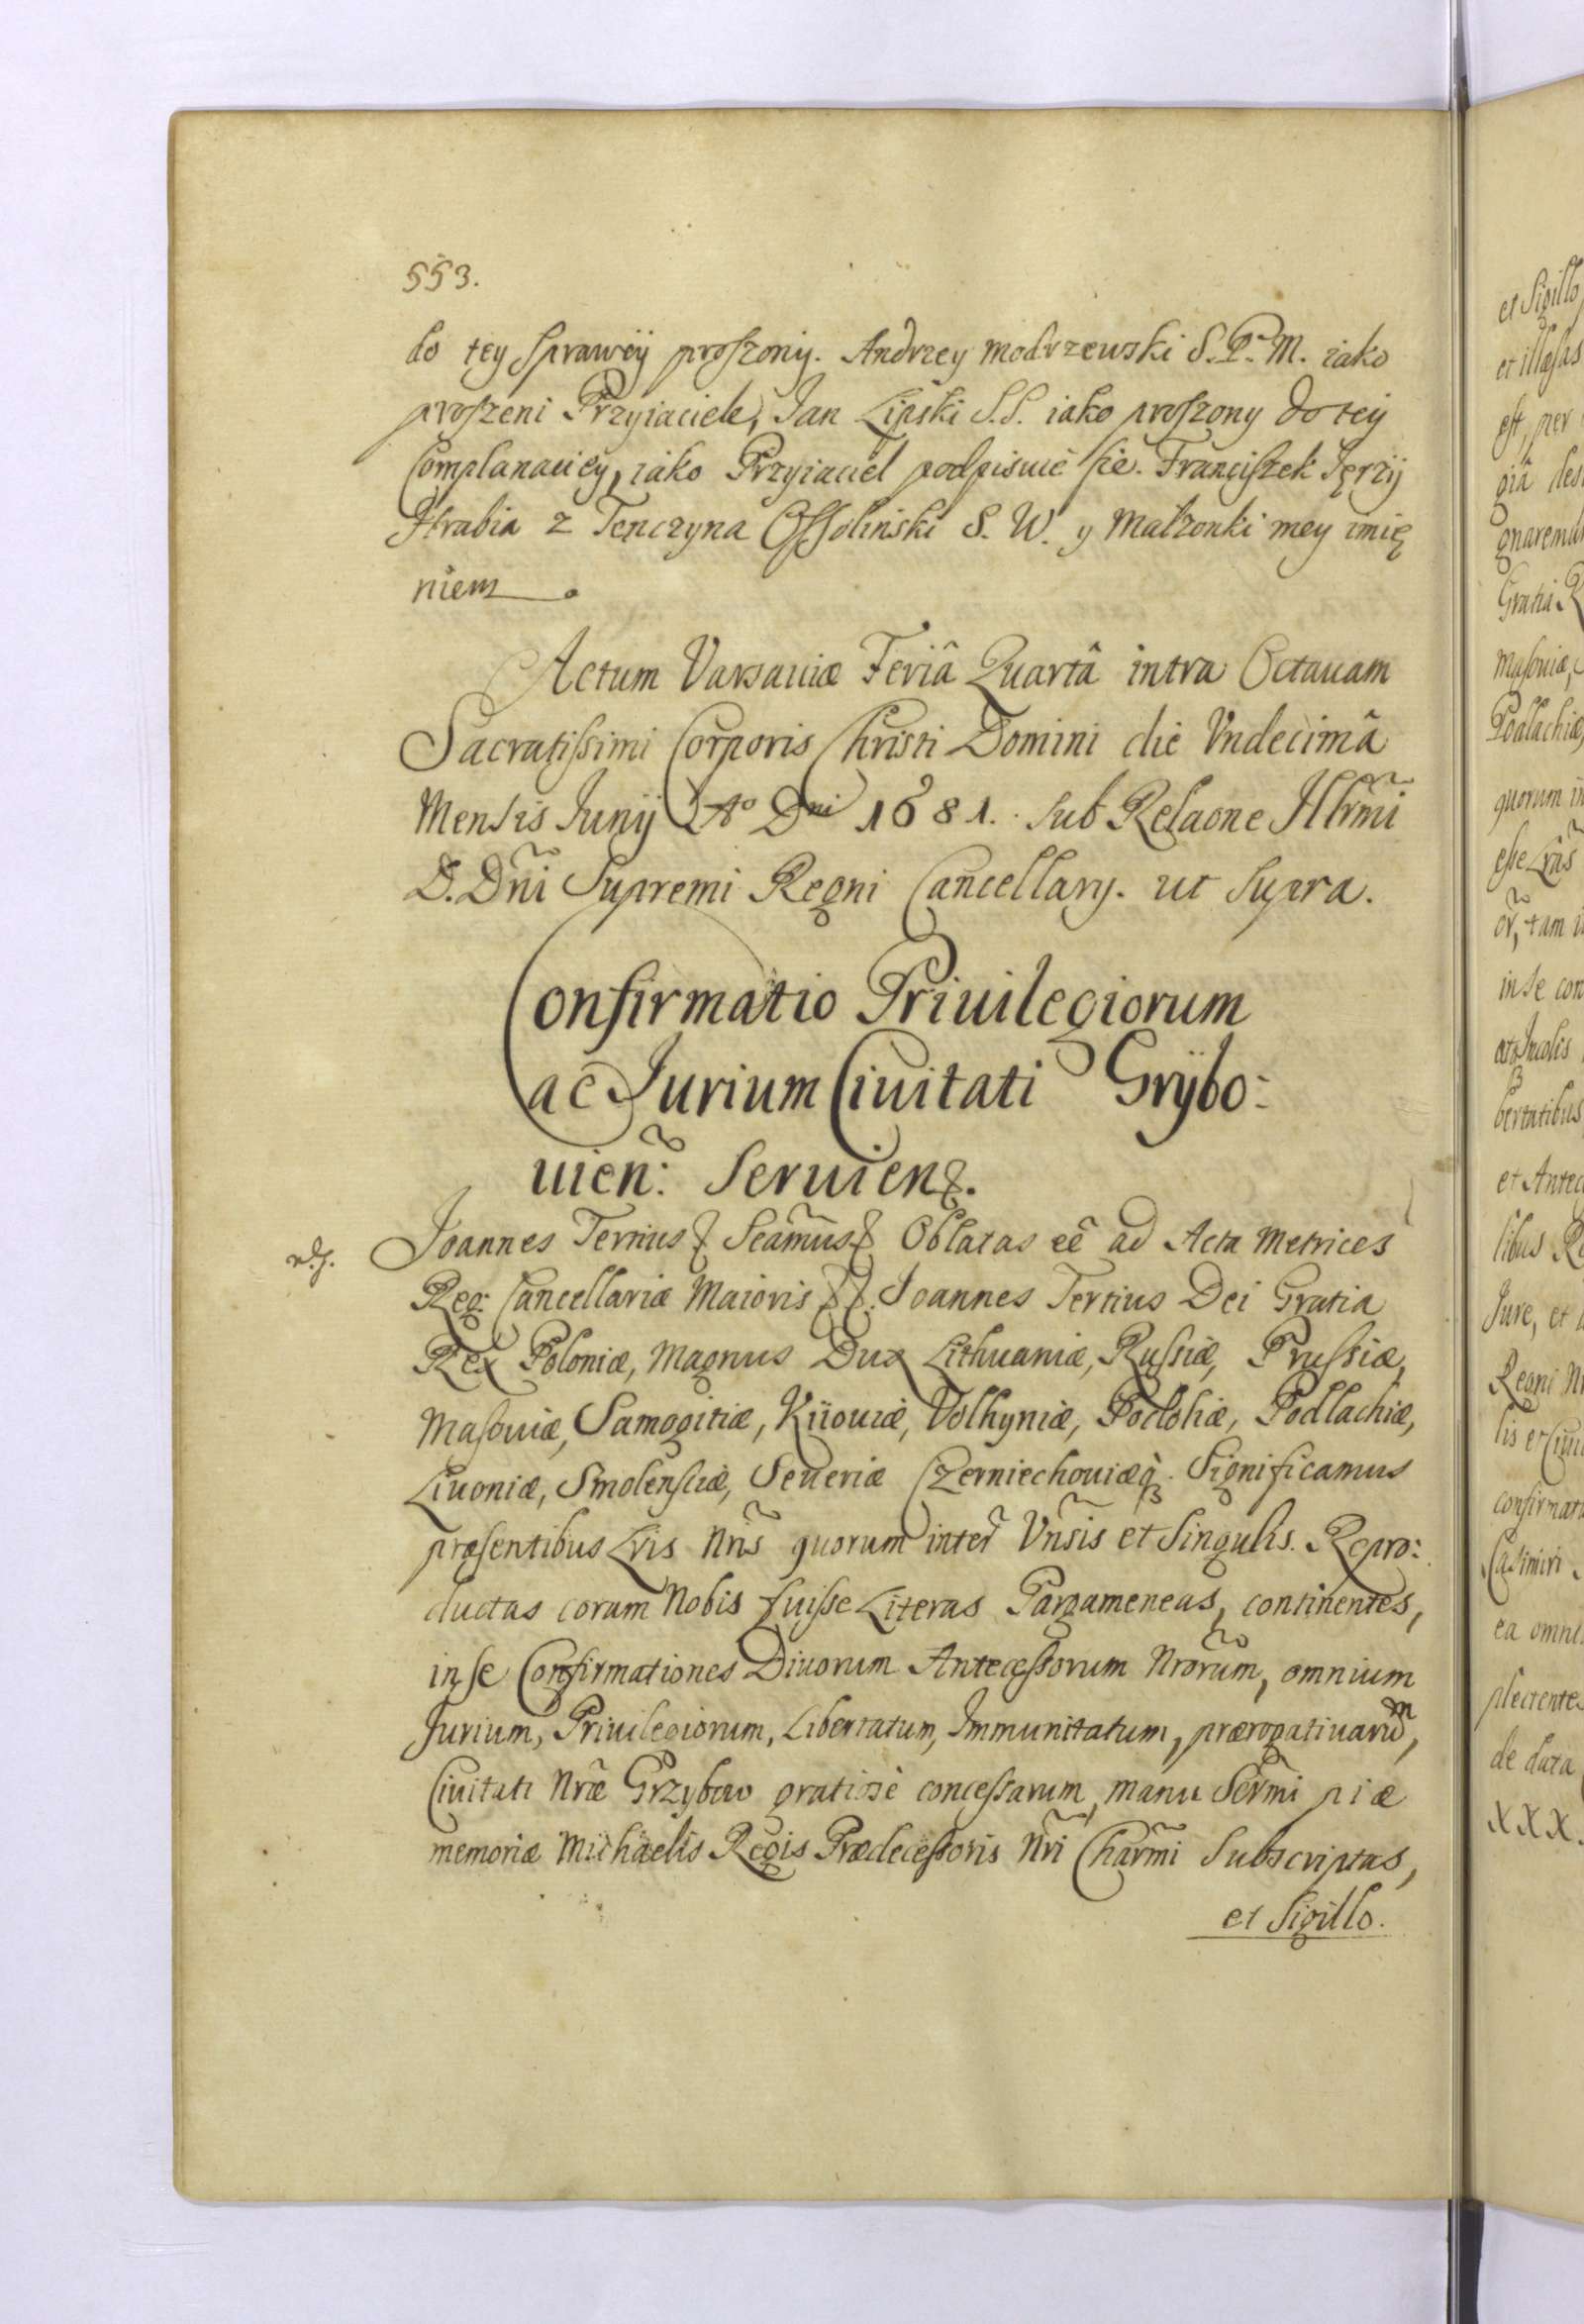 553.
do tey Sprawÿ proszony. Andrzey Modrzewski S. P. M. iako
proszeni Przyiaciele, Jan Lipski S.S. iako proszony do teÿ
Complanaciey, iako Przyiaciel podpisuie się. Franciszek Jerzÿ
Hrabia z Tenczyna Ossolinski S. W. y Małżonki mey imię
niem.
Actum Varsauiæ Feriâ Quartâ intra Octauam
Sacratissimi Corporis Christi Domini die Vndecimâ
Mensis Junÿ Aº Dni 1681. sub Relaone Illrmi
D. Dni Supremi Regni Cancellarÿ. ut supra.
Confirmatio Priuilegiorum
ac Jurium Ciuitati Grÿbo:
uien: seruien.
Joannes Tertius Seamus Oblatas eê ad Acta Metrices
Reg: Cancellariæ Maioris Joannes Tertius Dei Gratia
Rex Poloniæ, Magnus Dux Lithuaniæ, Russiæ, Prussiæ,
Masouiæ, Samogitiæ, Kiiouiæ, Volhyniæ, Podoliæ, Podlachiæ,
Liuoniæ, Smolensciæ, Seueriæ Czerniechouiæq. Significamus
præsentibus Lris Nris quorum interẽ Vnsis et Singulis. Repro:
ductas coram Nobis fuisse Literas Pargameneas, continentes,
in se Confirmationes Diuorum Antecessorum Nrorum, omnium
Jurium, Priuilegiorum, Libertatum, Immunitatum, prærogatiuarũm,
Ciuitati Nræ Grzybow gratiosè concessarum, manu Sermi piæ
memoriæ Michaelis Regis Prædecessoris Nri Charmi subscriptas,
et Sigillo.
et Sigillo
et illæsas
est, per
Gratia R
Masouiæ,
Podlachiæ
quorum in
esse Lris
or, tam
in se con
Incolis
bertatibus
et Antec
libus Re
Jure, et
Regni N
lis et Ciui
confirmat
Casimiri
ea omni
plectentes
de data
XXX.